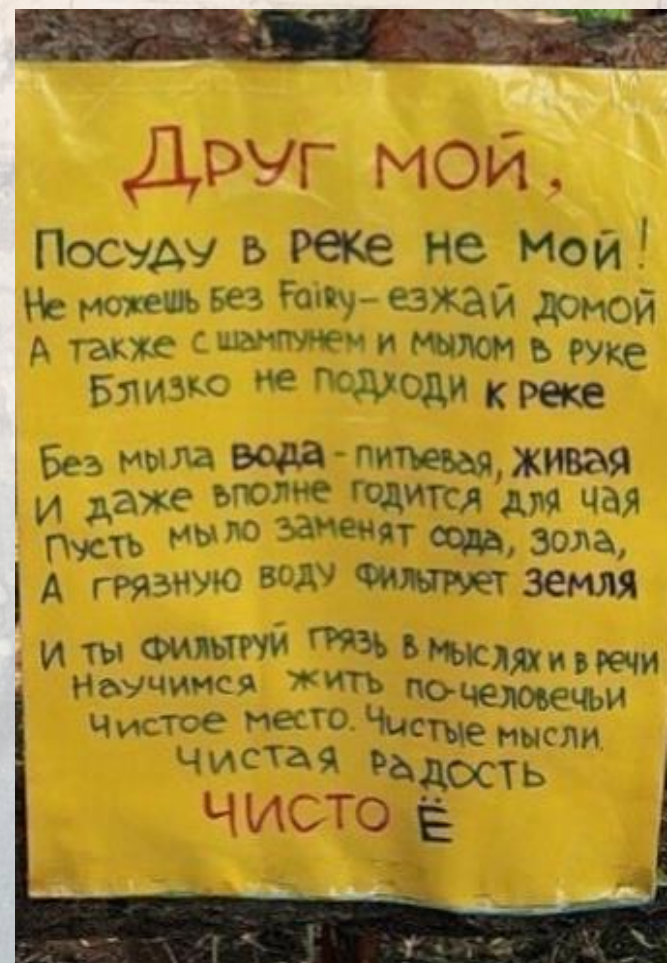 Друг мой,
Посуду в реке не мой!
Не можешь без Fairy- езжай домой
А также с шампунем и мылом в руке
Близко не подходи к реке
Без мыла вода - питьевая, живая
И даже вполне годится для чая
Пусть мыло заменят сода, зола,
А грязную воду фильтрует земля
И ты фильтруй грязь в мыслях и в речи
Научимся жить по-человечьи
Чистое место. Чистые мысли.
Чистая радость
ЧИСТО Ё